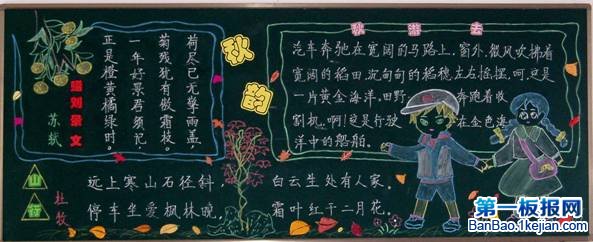 赠刘景文
苏轼
荷尽已无擎雨盖,
菊残犹有傲霜枝。
一年好景君须记,
正是橙黄橘绿时。
秋韵
秋游去
汽车奔驰在宽阔的马路上.窗外,微风吹拂着
宽阔的稻田.沉甸甸的稻穗左右摇摆.呵,这是
一片黄金海洋.田野 奔跑着收
割机.啊!这是行驶 在金色海
洋中的船舶.
山行
杜牧
远上寒山石径斜, 白云生处有人家。
停车坐爱枫林晚, 霜叶红于二月花。
第一板报网
BanBao.1kejian.com